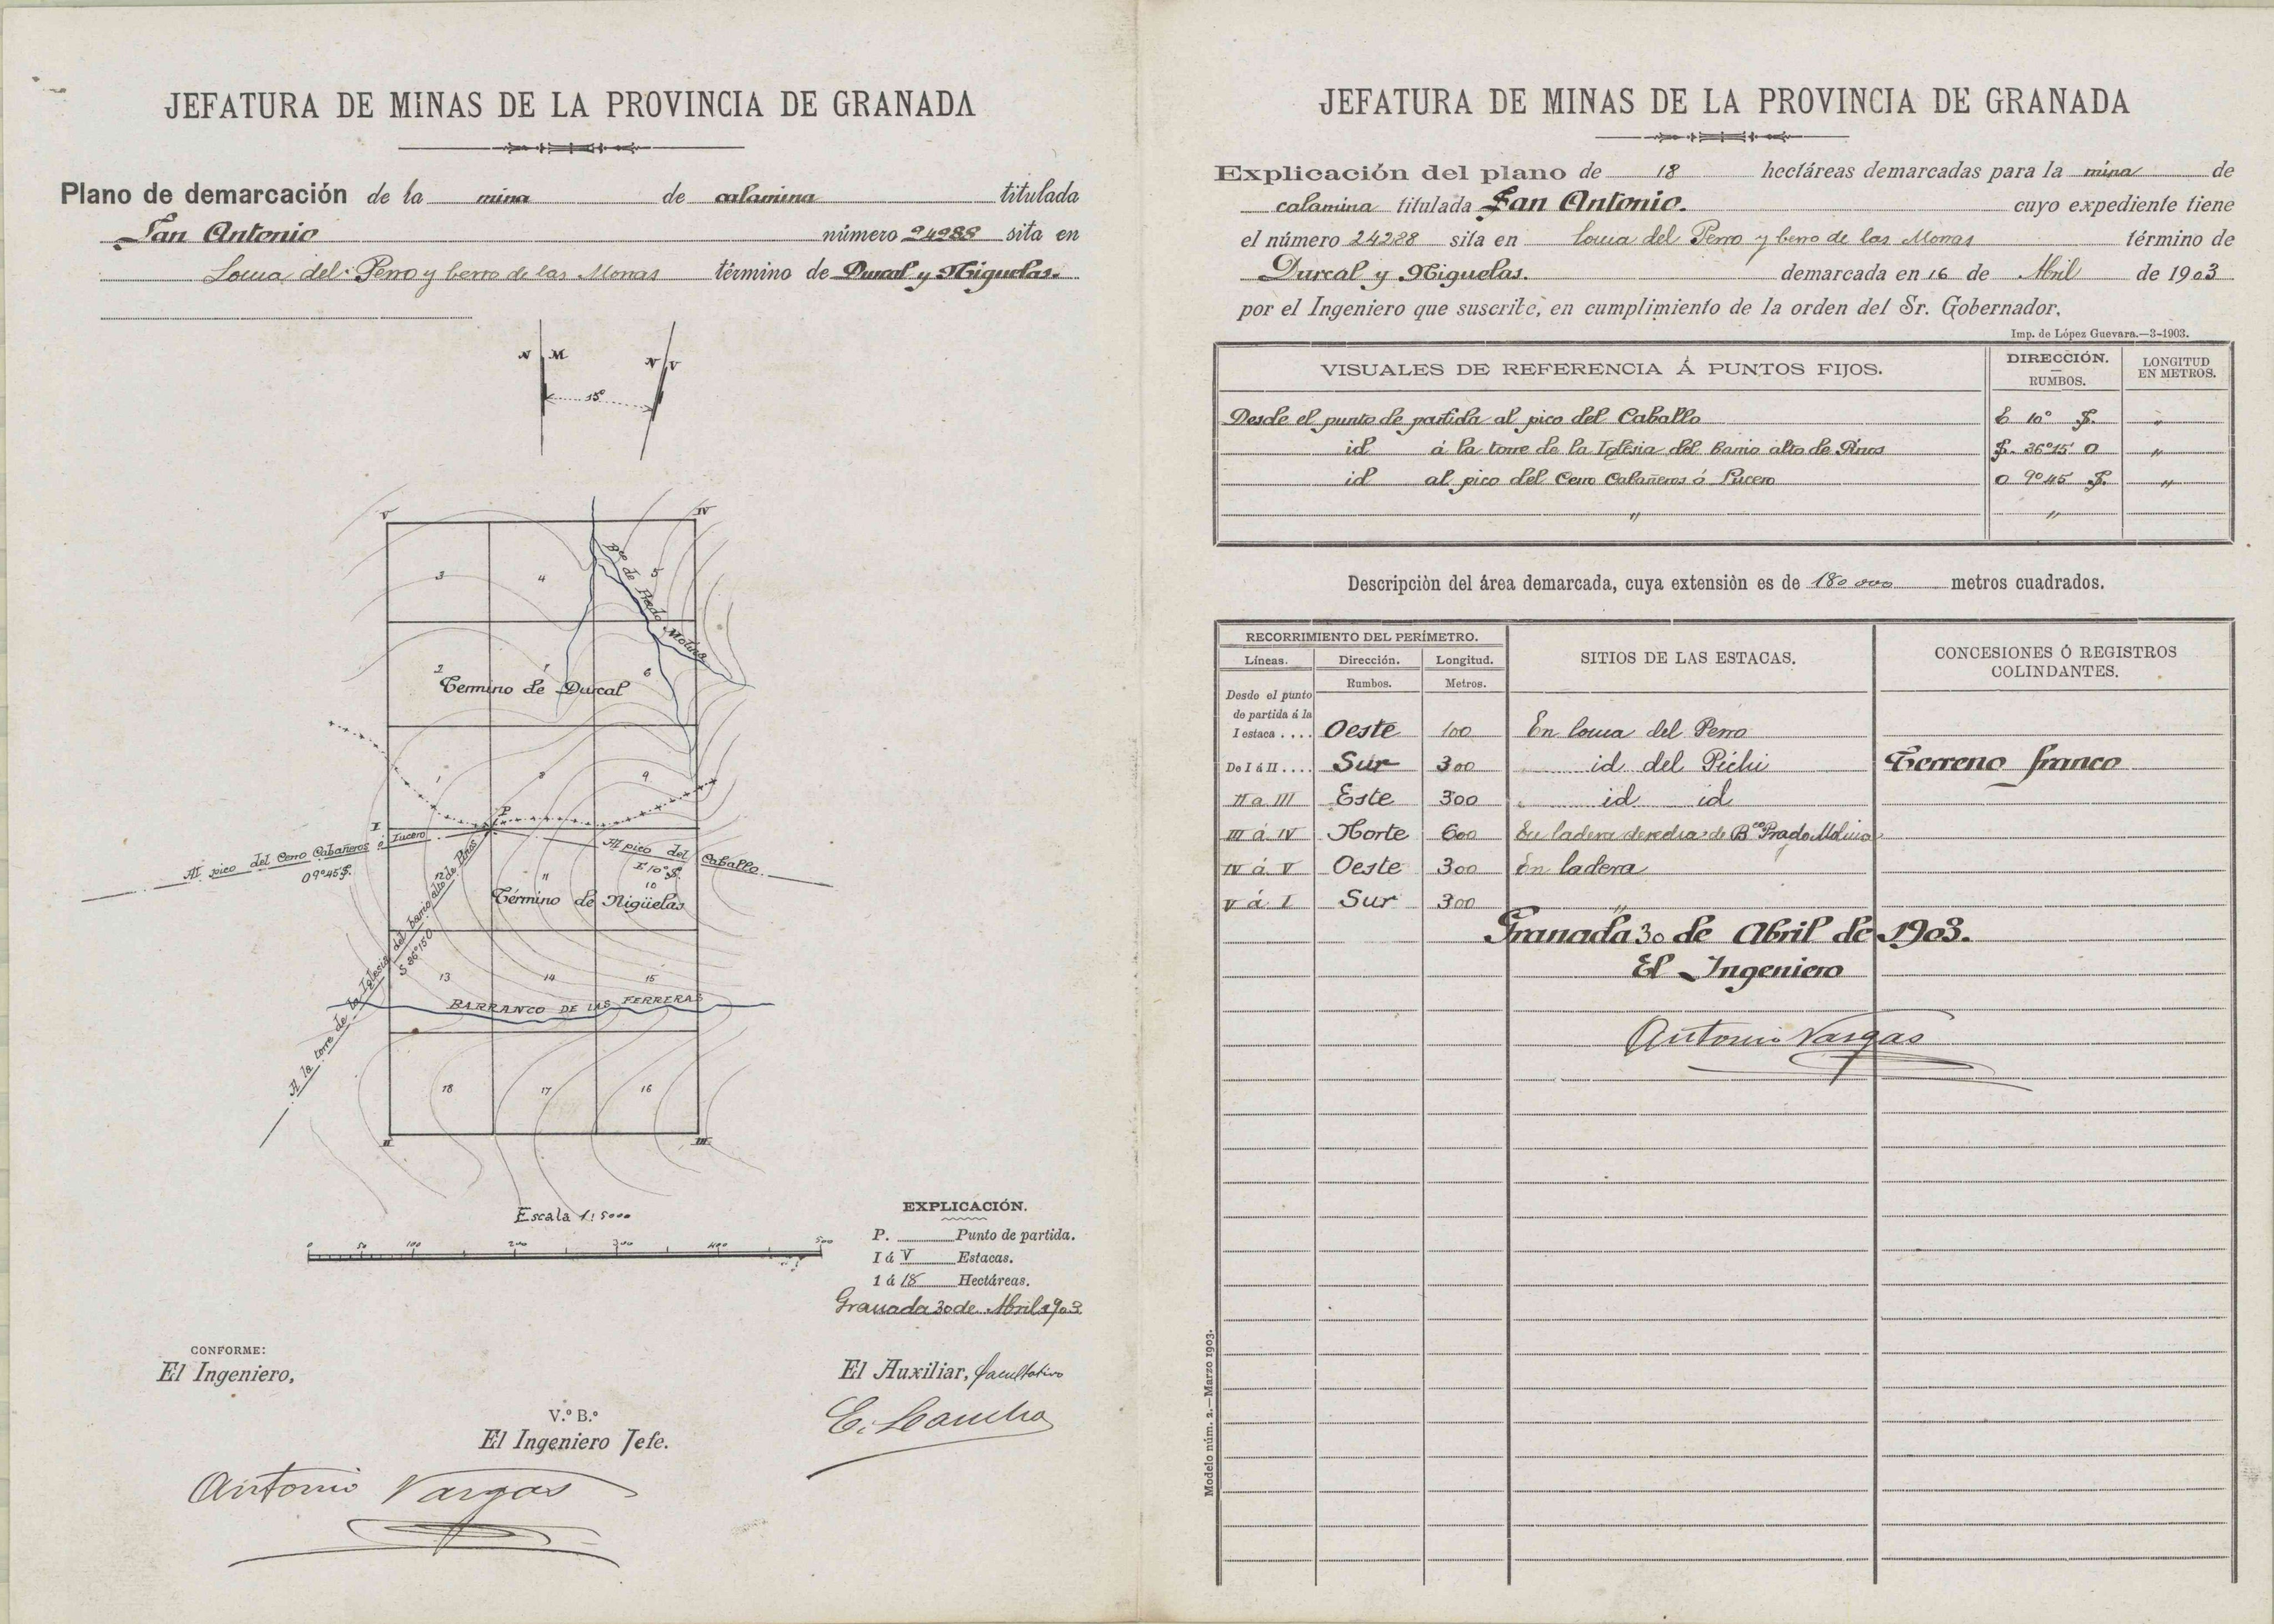 JEFATURA DE MINAS DE LA PROVINCIA DE GRANADA
Plano de demarcación de la mina de calamina titulada
San Antonio número 24288 sita en
Loma del Perro y berro de las Monas término de Durcal y Niguelas.
N M
N V
15º
V
IV
3
4
5
Bco de Prado Molino
2
1
6
Termino de Durcal
7
8
9
P
I
Al pico del Cerro Cabañeros ó Lucero
O 9º45 S.
Al pico del Caballo
E 10º S.
12
11
10
Término de Nigüelas
A la torre de la Iglesia del barrio alto de Pinos
S 36º15 O
13
14
15
BARRANCO DE LAS FERRERAS
18
17
16
II
III
Escala 1:5000
0 50 100 200 300 400 500
EXPLICACIÓN.
P. Punto de partida.
I á V Estacas.
1 á 18 Hectáreas.
Granada 30 de Abril 1903
CONFORME:
El Ingeniero,
El Auxiliar, facultativo
V.º B.º
El Ingeniero Jefe.
Antonio Vargas
JEFATURA DE MINAS DE LA PROVINCIA DE GRANADA
Explicación del plano de 18 hectáreas demarcadas para la mina de
calamina titulada San Antonio. cuyo expediente tiene
el número 24288 sita en Loma del Perro y berro de las Monas término de
Durcal y Niguelas. demarcada en 16 de Abril de 1903
por el Ingeniero que suscribe, en cumplimiento de la orden del Sr. Gobernador.
Imp. de López Guevara.—3-1903.
VISUALES DE REFERENCIA Á PUNTOS FIJOS. DIRECCIÓN. RUMBOS. LONGITUD EN METROS.
Desde el punto de partida al pico del Caballo E 10º S. "
id á la torre de la Iglesia del barrio alto de Pinos S. 36º15' O "
id al pico del Cerro Cabañeros ó Lucero O 9º45 S. "
" "
Descripción del área demarcada, cuya extensión es de 180 000 metros cuadrados.
RECORRIMIENTO DEL PERÍMETRO. SITIOS DE LAS ESTACAS. CONCESIONES Ó REGISTROS COLINDANTES.
Líneas. Dirección. Longitud.
Rumbos. Metros.
Desde el punto
de partida á la
I estaca .... Oeste 100 En loma del Perro
De I á II.... Sur 300 id del Pichi Terreno franco
II a III Este 300 id id
III á IV Norte 600 En ladera derecha de Bco Prado Molino
IV á V Oeste 300 En ladera
V á I Sur 300 "
Granada 30 de Abril de 1903.
El Ingeniero
Antonio Vargas
Modelo núm. 2.—Marzo 1903.